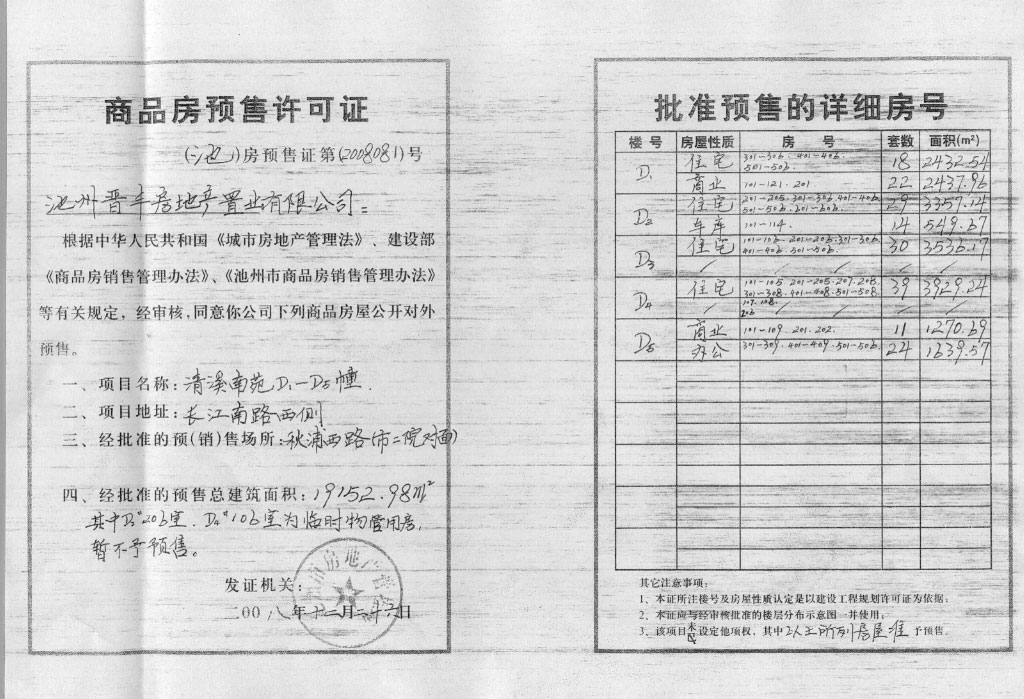 商品房预售许可证
(池)房预售证第(2008081)号
池州晋丰房地产置业有限公司:
根据中华人民共和国《城市房地产管理法》、建设部
《商品房销售管理办法》、《池州市商品房销售管理办法》
等有关规定，经审核，同意你公司下列商品房屋公开对外
预售。
一、项目名称:清溪南苑D1—D5幢.
二、项目地址:长江南路西侧
三、经批准的预(销)售场所:秋浦西路(市二院对面)
四、经批准的预售总建筑面积:19152.98m²
206室. D4#106室为临时物管用房,
暂不予预售。
发证机关:
二00八年十二月二十六日
批准预售的详细房号
楼 号 房屋性质 房 号 套数 面积(m²)
D1 住宅 301-306. 401-406. 501-506. 18 2432.54
商业 101-121. 201 22 2437.96
D2 住宅 201-205. 301-306. 401-406. 501-506. 601-606. 29 3357.14
车库 101-114. 14 549.67
D3 住宅 101-106. 201-206. 301-306. 401-406. 501-506. 30 3536.17
/ / / /
D4 住宅 101-105. 201-205. 207. 208. 301-308. 401-408. 501-508. 39 3929.24
/ 107. 108. / /
D5 商业 101-109. 201. 202. 11 1270.69
办公 301-309. 401-409. 501-506. 24 1639.57
其它注意事项:
1、本证所注楼号及房屋性质认定是以建设工程规划许可证为依据;
2、本证应与经审核批准的楼层分布示意图一并使用;
3、该项目未设定他项权，其中以上所列房屋准予预售。